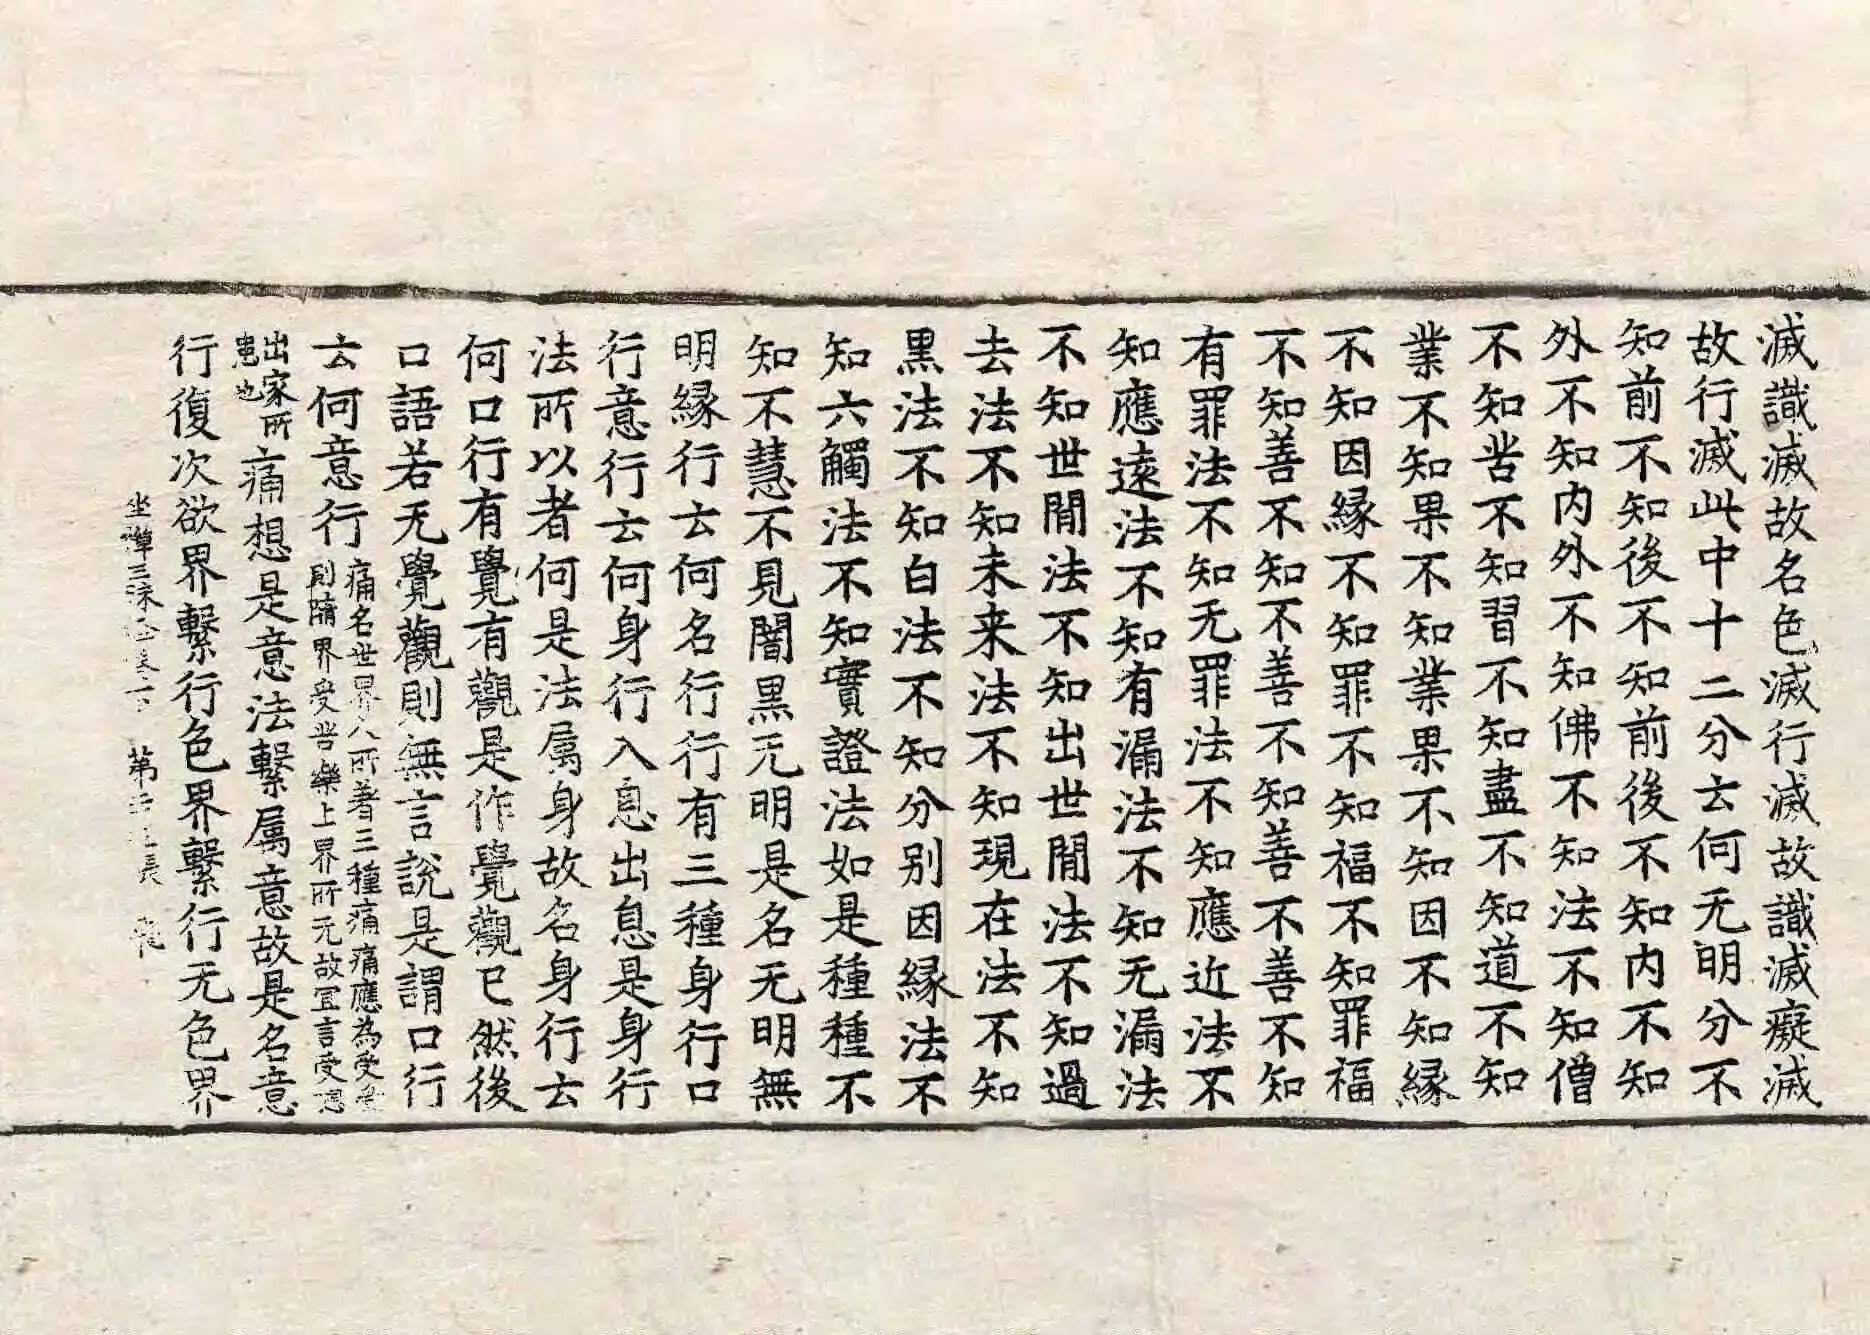 滅識滅故名色滅行滅故識滅癡滅
故行滅此中十二分云何无明分不
知前不知後不知前後不知内不知
外不知内外不知佛不知法不知僧
不知苦不知習不知盡不知道不知
業不知果不知業果不知因不知縁
不知因縁不知罪不知福不知罪福
不知善不知不善不知善不善不知
有罪法不知无罪法不知應近法不
知應遠法不知有漏法不知无漏法
不知世間法不知出世間法不知過
去法不知未来法不知現在法不知
黒法不知白法不知分别因縁法不
知六觸法不知實證法如是種種不
知不慧不見闇黒无明是名无明無
明縁行云何名行行有三種身行口
行意行云何身行入息出息是身行
法所以者何是法属身故名身行云
何口行有覺有觀是作覺觀已然後
口語若无覺觀則無言説是謂口行
云何意行
痛名世界人所著三種痛痛應為受
則隨界受苦樂上界所无故宜言受
出家所
患也
痛想是意法繫属意故是名意
行復次欲界繫行色界繫行无色界
坐禅三 下 第 張